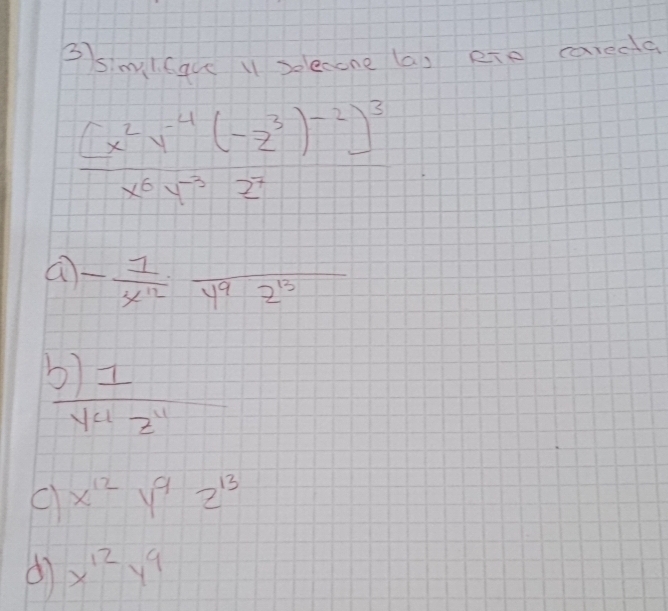 3) Simplifque y Selecione las
[x² y⁻⁴ (-z³)⁻²]³
x⁶ y⁻³ z⁷
a) - 1/x¹² y⁹ z¹³
b) 1
y⁹ z¹¹
c) x¹² y⁹ z¹³
d) x¹² y⁹